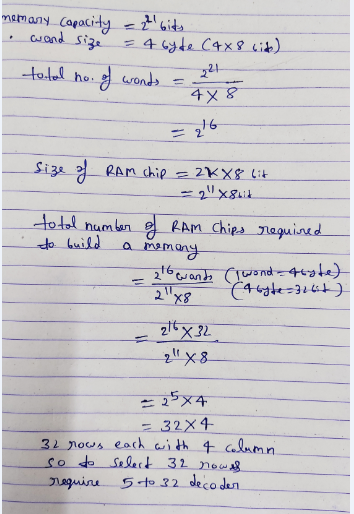 memory capacity = 2^21 bits
. word size = 4 byte (4x8 bit)
total no. of words = 2^21 / 4 X 8
= 2^16
Size of RAM chip = 2K X 8 bit
= 2^11 X 8 bit
total number of RAM Chips required
to build a memory
= 2^16 words / 2^11 X 8 (1 word = 4 byte)
(4 byte = 32 bit)
= 2^16 X 32 / 2^11 X 8
= 2^5 X 4
= 32 X 4
32 rows each with 4 column
so to select 32 rows
require 5 to 32 decoder